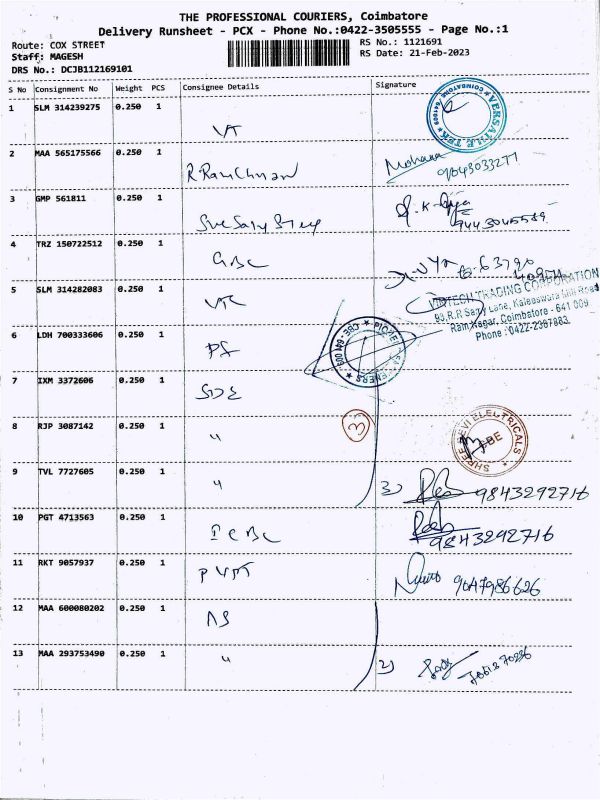 THE PROFESSIONAL COURIERS, Coimbatore
Delivery Runsheet - PCX - Phone No.:0422-3505555 - Page No.:1
Route: COX STREET
RS No.: 1121691
Staff: MAGESH
RS Date: 21-Feb-2023
DRS No.: DCJB112169101
S No Consignment No Weight PCS Consignee Details Signature
1 SLM 314239275 0.250 1 VT
VERSATILE TEK
COIMBATORE - 641009
2 MAA 565175566 0.250 1
Mohana
9043033277
3 GMP 561811 0.250 1
4 TRZ 150722512 0.250 1 GBC
5 SLM 314282083 0.250 1 VTC
VINTECH TRADING CORPORATION
93, R.R Samy Lane, Kaleaswara Mill Road
Ram Nagar, Coimbatore - 641 009
Phone : 0422-2367883
6 LDH 700333606 0.250 1 PF
7 IXM 3372606 0.250 1 SDE
8 RJP 3087142 0.250 1 "
3
SHREE DEVI ELECTRICALS
CBE
9 TVL 7727605 0.250 1 "
3) 9843292716
10 PGT 4713563 0.250 1 ICBC
9843292716
11 RKT 9057937 0.250 1
9047986626
12 MAA 600080202 0.250 1 NS
13 MAA 293753490 0.250 1 "
2)